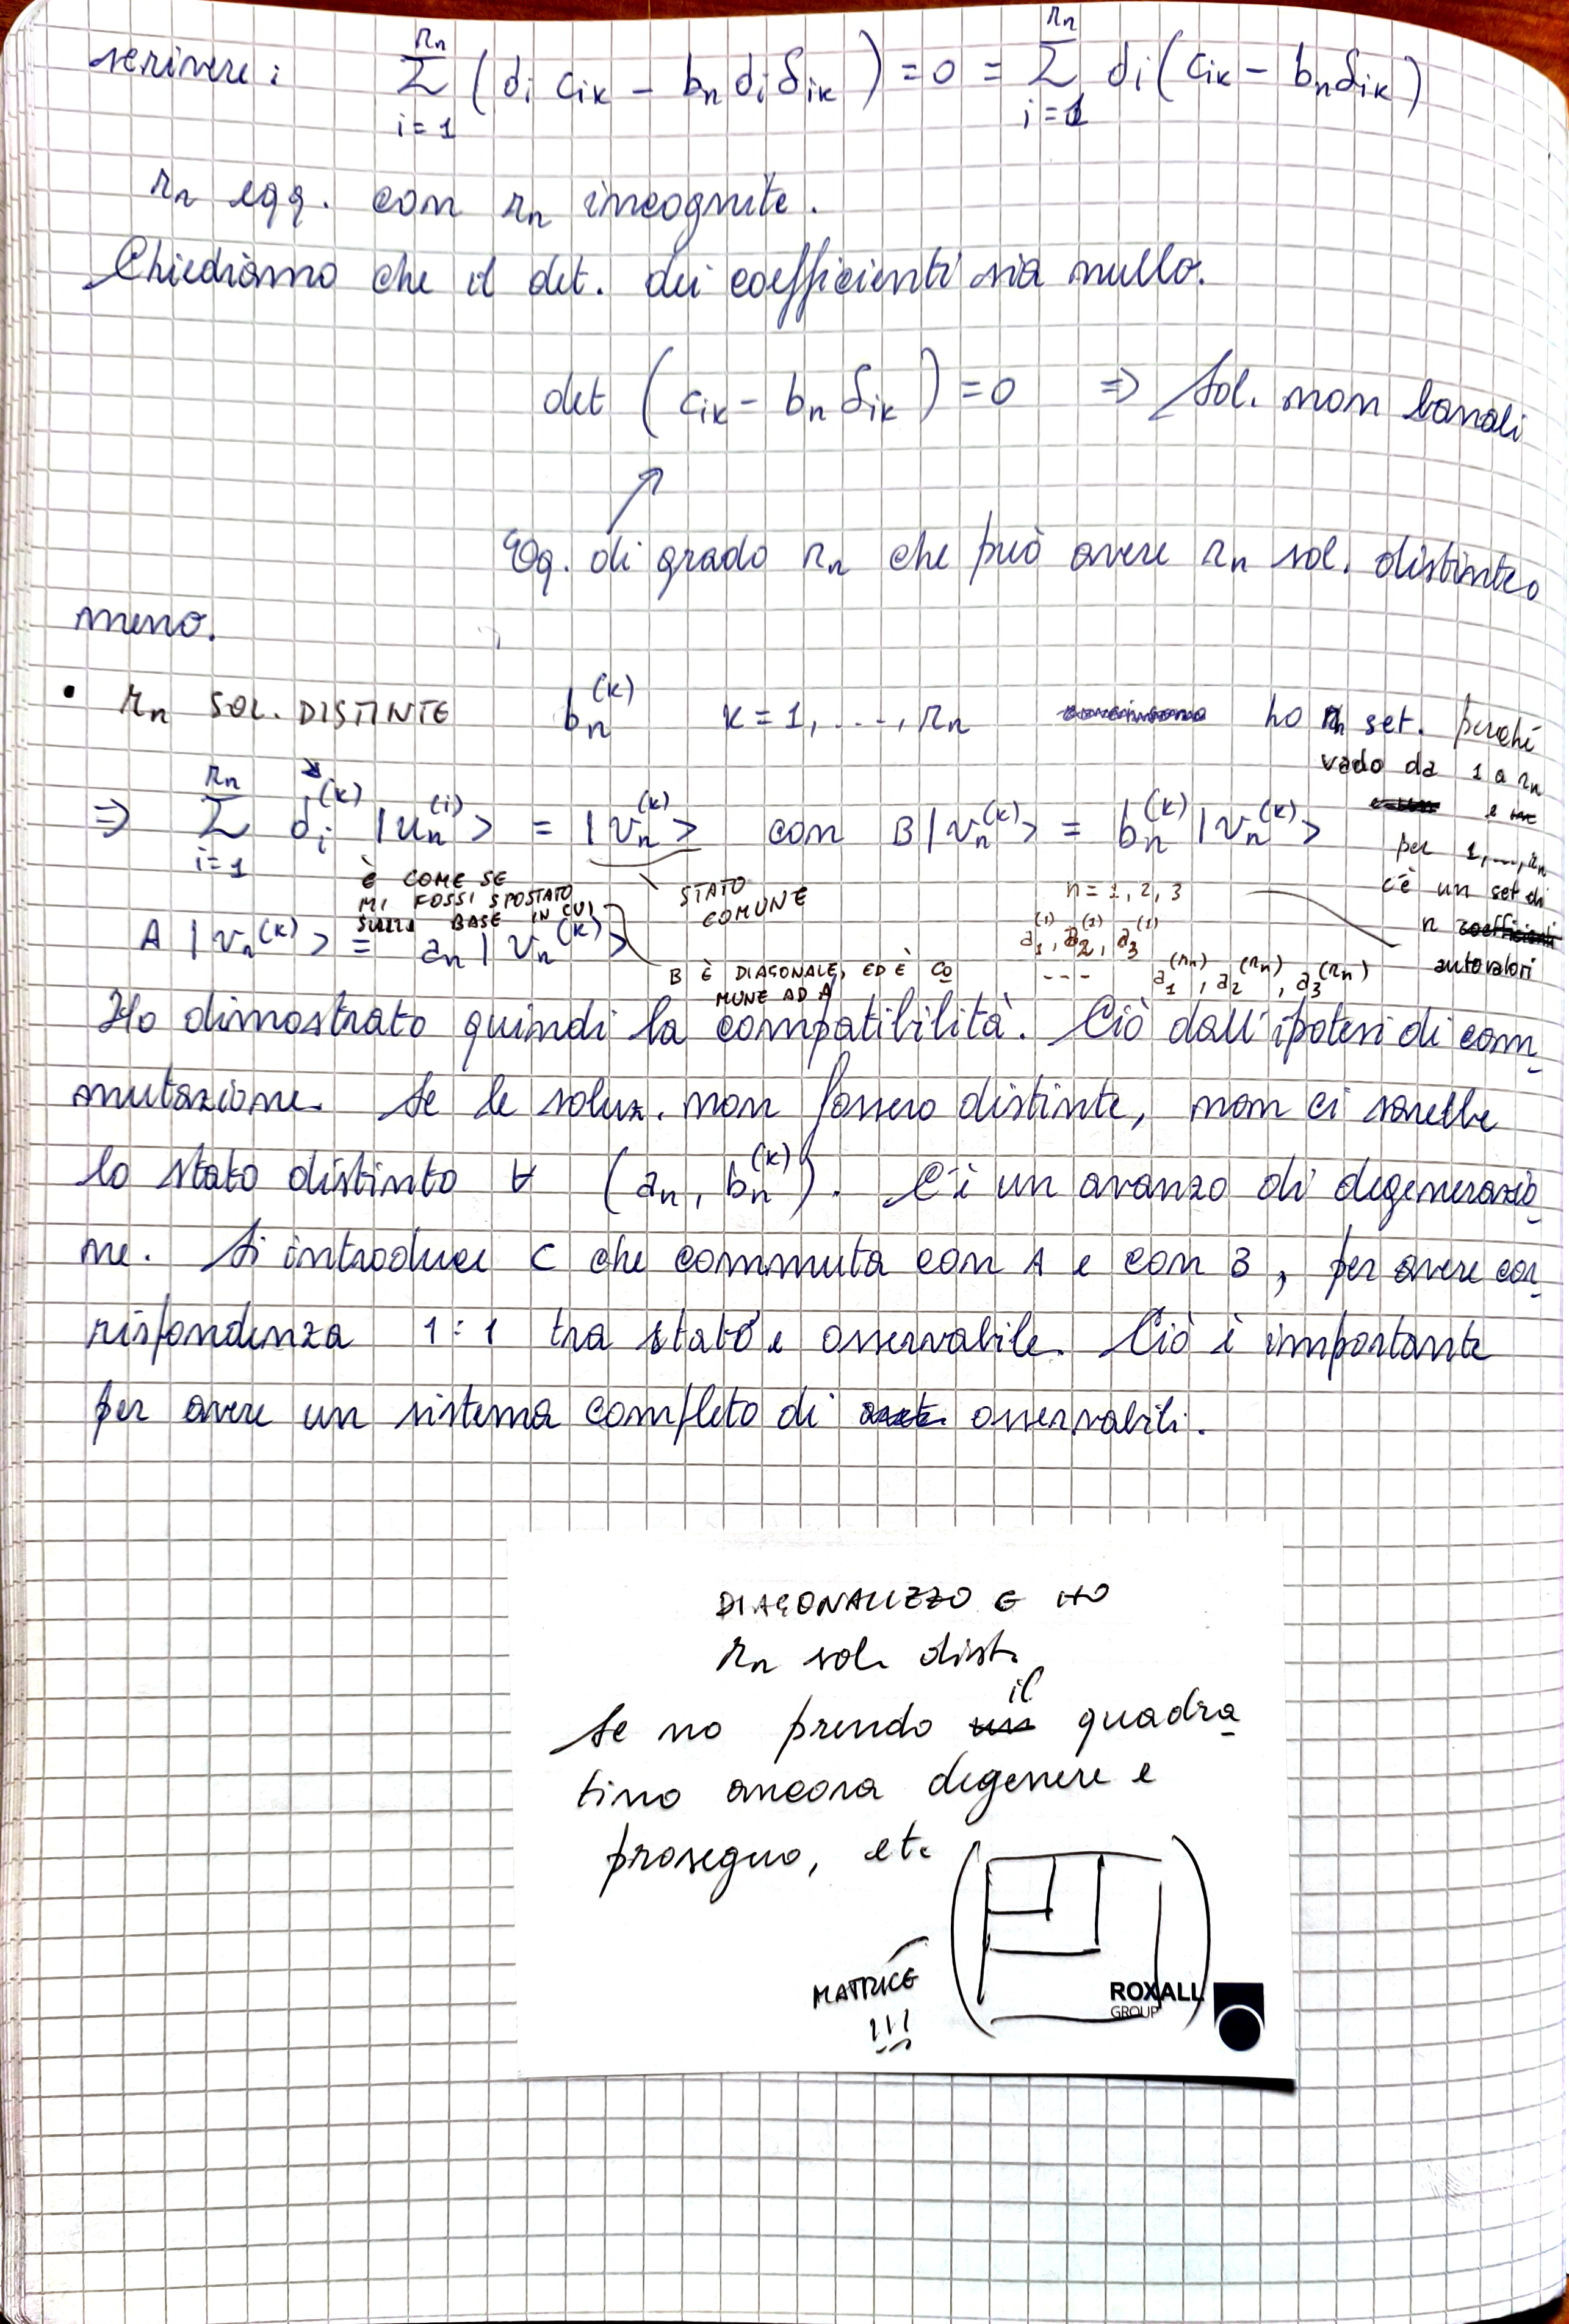 scrivere: Σ_{i=1}^{r_n} (d_i c_{ik} − b_n d_i δ_{ik}) = 0 = Σ_{i=1}^{r_n} d_i (c_{ik} − b_n δ_{ik})
r_n eqq. con r_n incognite.
Chiediamo che il det. dei coefficienti sia nullo.
det (c_{ik} − b_n δ_{ik}) = 0 ⇒ Sol. non banali
Eq. di grado r_n che può avere r_n sol. distinte o
meno.
• r_n SOL. DISTINTE b_n^{(k)} k = 1, ...., r_n
ho r_n set. perché
vado da 1 a r_n
e
per 1,...,r_n
c'è un set di
n coefficienti
autovalori
⇒ Σ_{i=1}^{r_n} d_i^{(k)} |u_n^{(i)}> = |v_n^{(k)}> con B|v_n^{(k)}> = b_n^{(k)} |v_n^{(k)}>
È COME SE
MI FOSSI SPOSTATO
SULLA BASE IN CUI
B È DIAGONALE, ED È CO
MUNE AD A
STATO
COMUNE
n = 1, 2, 3
a_1^{(1)}, a_2^{(1)}, a_3^{(1)}
--- a_1^{(r_n)}, a_2^{(r_n)}, a_3^{(r_n)}
A |v_n^{(k)}> = a_n |v_n^{(k)}>
Ho dimostrato quindi la compatibilità. Ciò dall'ipotesi di com-
mutazione. Se le soluz. non fossero distinte, non ci sarebbe
lo stato distinto ∀ (a_n, b_n^{(k)}). C'è un avanzo di degenerazio-
ne. Si introduce C che commuta con A e con B, per avere cor-
rispondenza 1:1 tra stato e osservabile. Ciò è importante
per avere un sistema completo di osservabili.
DIAGONALIZZO E HO
r_n sol. dist.
Se no prendo il quadra-
tino ancora degenere e
proseguo, etc.
MATRICE
!!!
ROXALL
GROUP